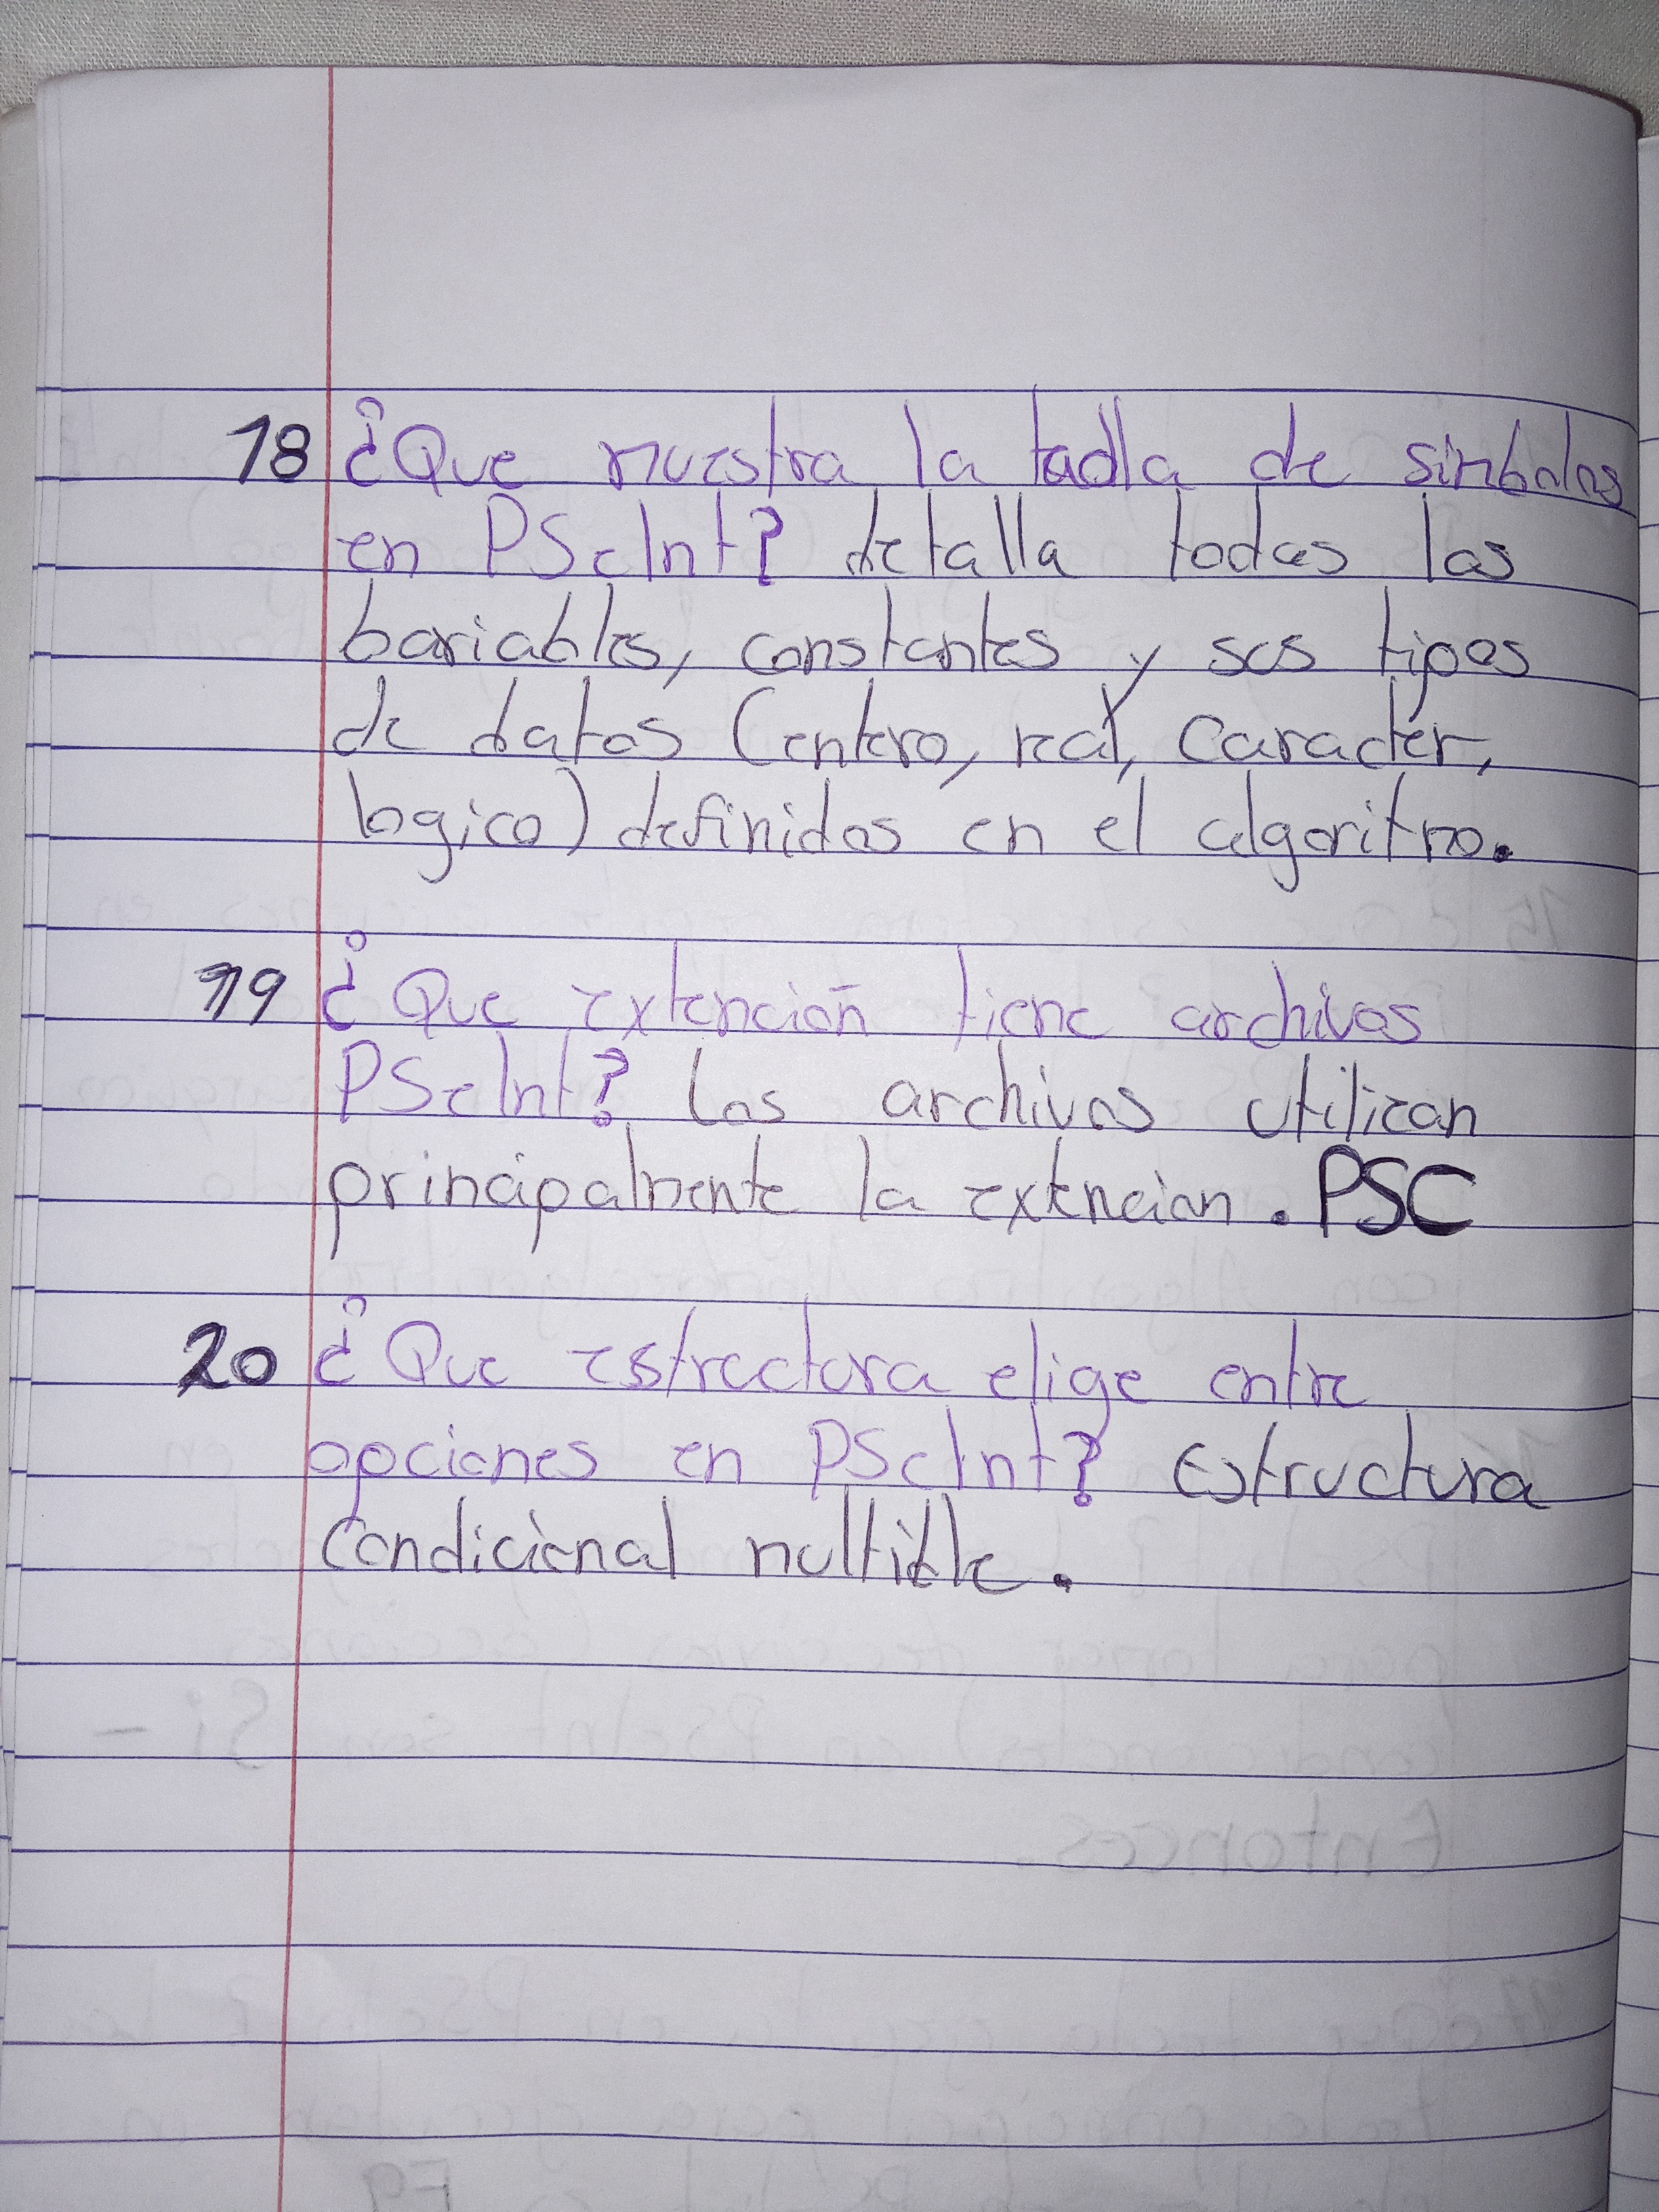 18 ¿Que muestra la tadla de sinbolos
en PSeInt? detalla todas las
bariables, constantes y sus tipos
de datos (entero, real, caracter,
logico) definidos en el algoritmo.
19 ¿Que extención tiene archivos
PSeInt? Los archivos utilizan
principalmente la extencion. PSC
20 ¿Que estructura elige entre
opciones en PSeInt? Estructura
Condicional